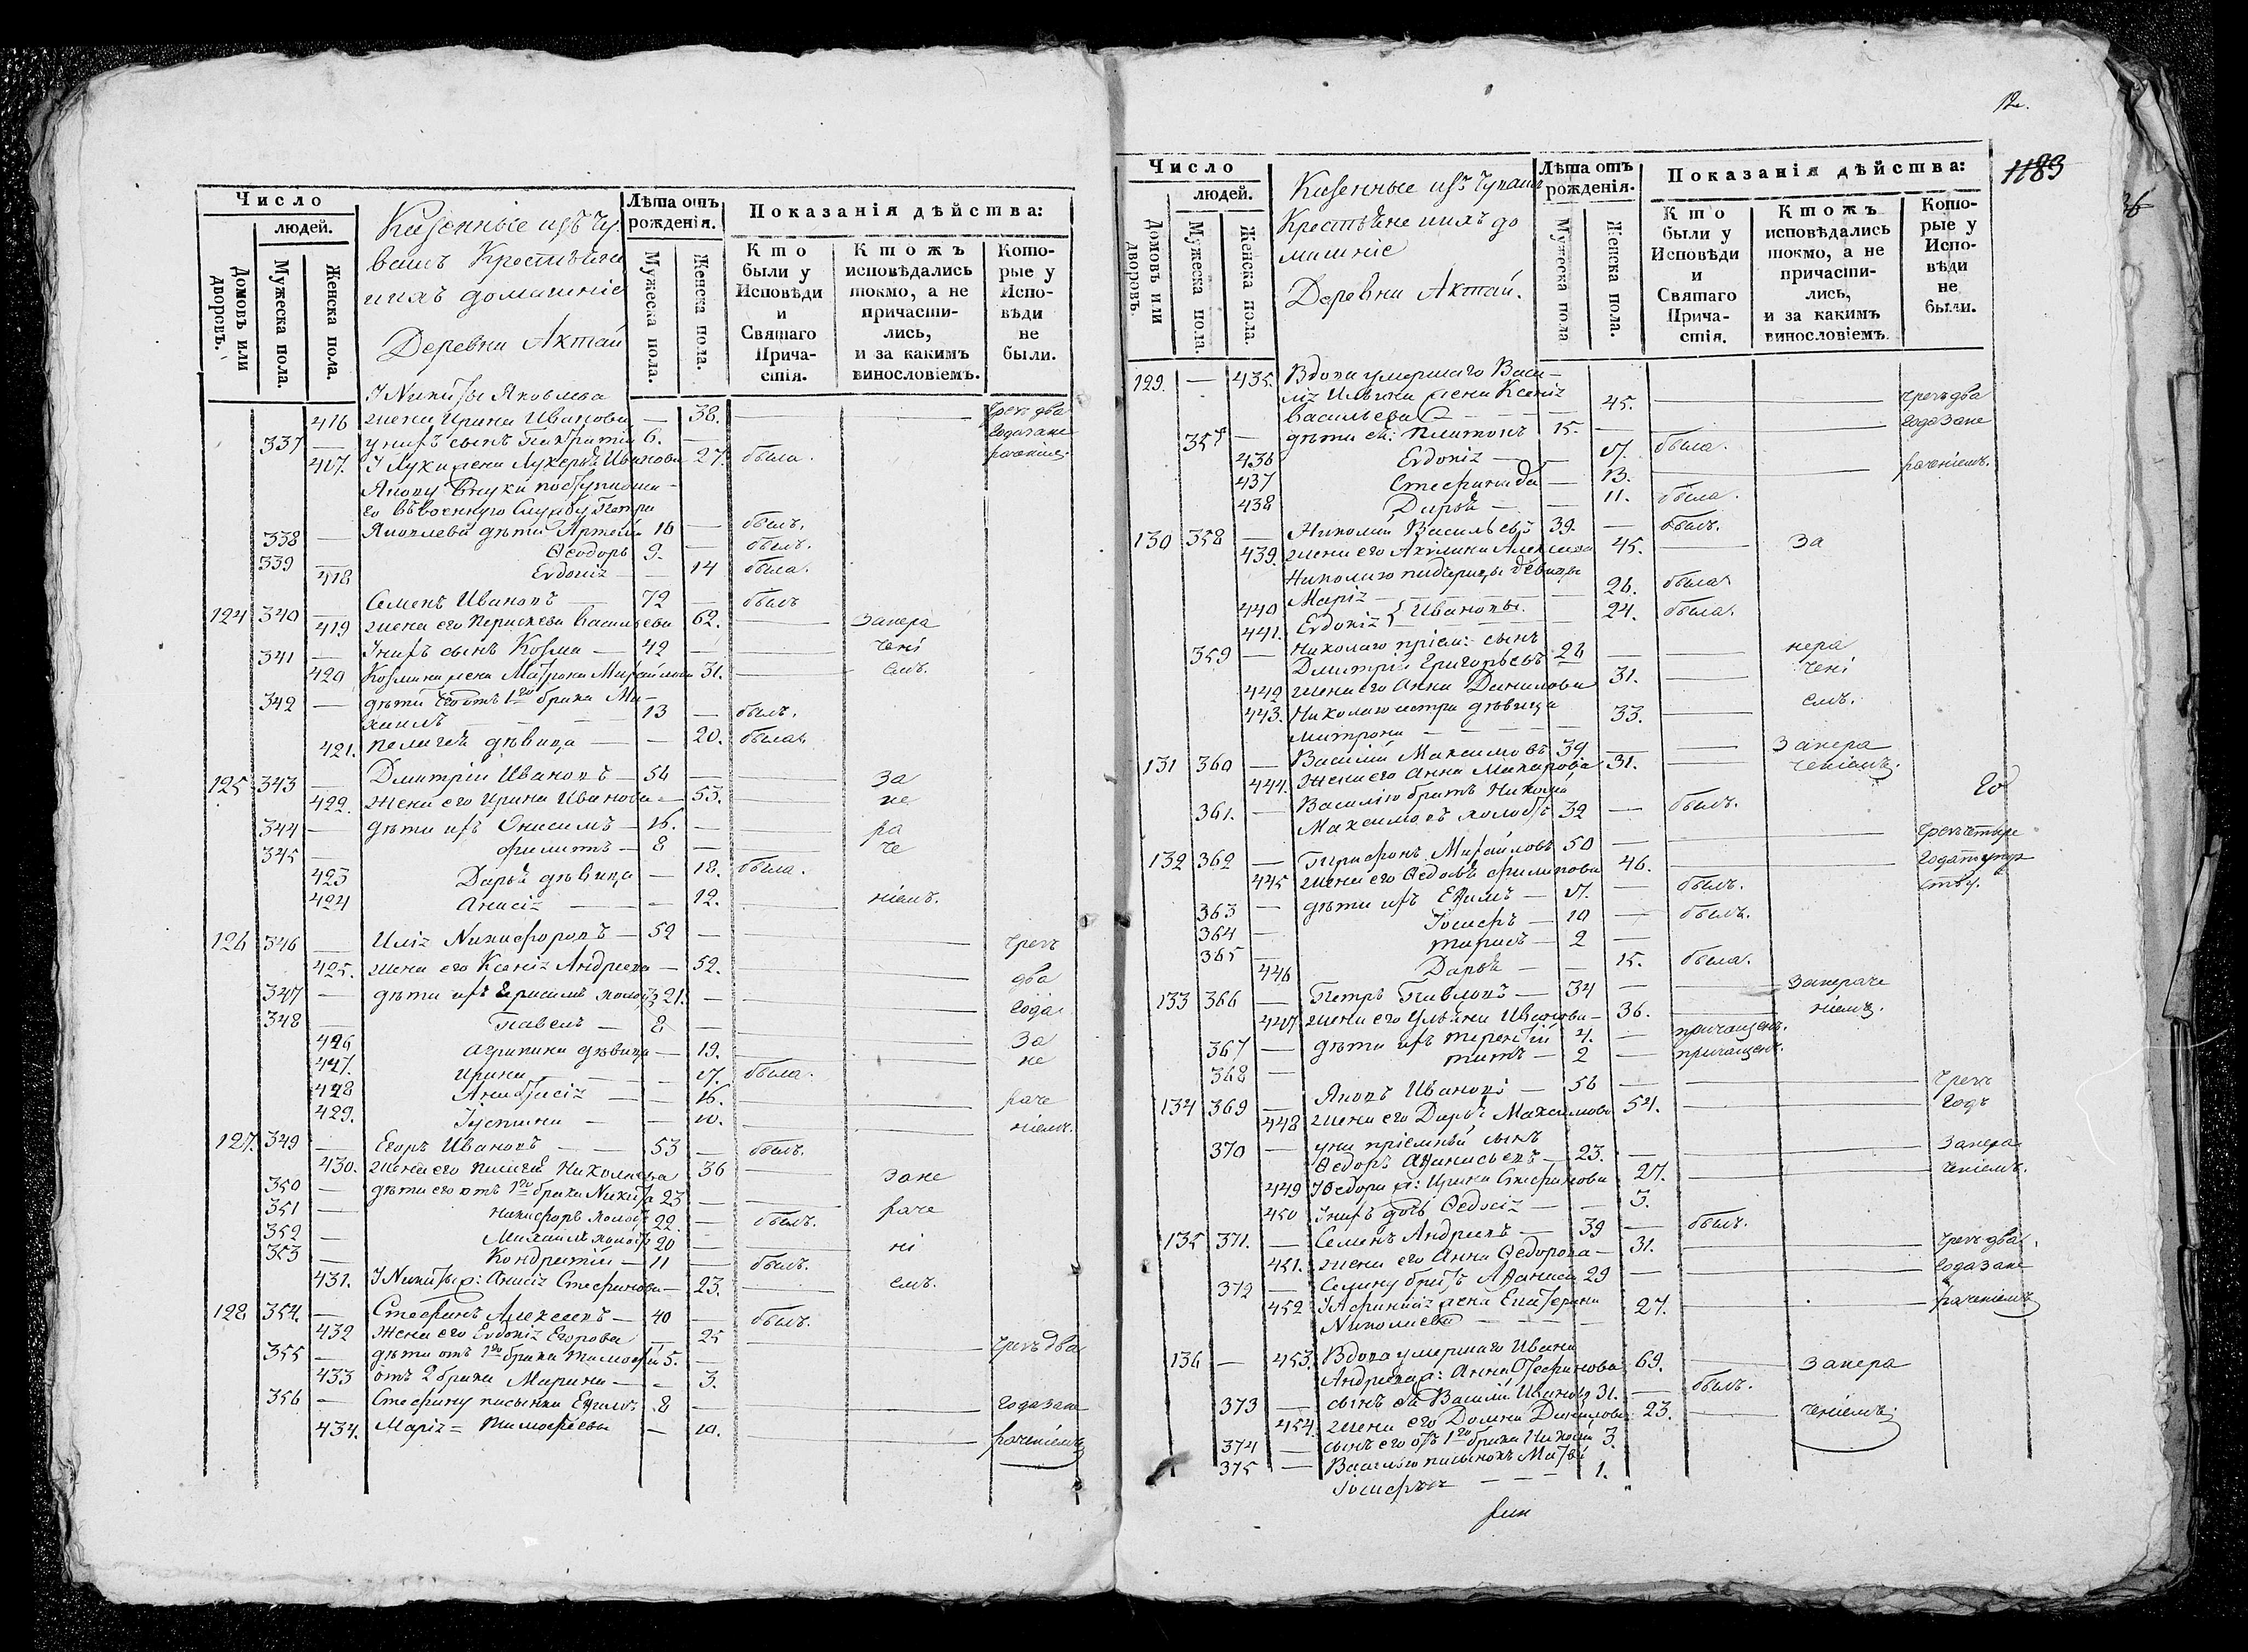 Число
людей.
Домовъ или дворовъ.
Мужеска пола.
Женска пола.
Казенные изъ Чу
вашъ Крестьяне
и ихъ домашніе
Деревни Актай
Лѣта отъ рожденія.
Мужеска пола.
Женска пола.
Показанія дѣйства:
Кто были у Исповѣди и Святаго Причастія.
Ктожъ исповѣдались токмо, а не причастились, и за какимъ винословіемъ.
Которые у Исповѣди не были.
У Никиты Яковлева
416 жена Ирина Иванова — 38. чрезъ два
337 — у нихъ сынъ Панкратій 6. — года за не
417. У Луки жена Лукерья Иванова 27. была. раченіемъ
Якову внуки поступивша-
го въ военную службу Петра
338 — Яковлева дѣти Артемій 16 — былъ.
339 — Ѳеодоръ 9. — былъ.
418 Евдокія — 14 была.
124 340 — Семенъ Ивановъ — 72 — былъ
419 жена его Парискева Васильева 62. занера
341 — У нихъ сынъ Козма — 42 — чені
420 Козмина жена Матрона Михайлова 31. емъ.
342 — дѣти его отъ 1го брака Ми-
хаилъ — 13 — былъ.
421. Пелагея дѣвица — — 20. была.
125 343 — Дмитрій Ивановъ — 56 — за
422. жена его Ирина Иванова — 53. не
344 — дѣти ихъ Онисимъ — 16. — ра
345 — Филиппъ — 8 — че
423 Дарья дѣвица — 18. была.
424 Анисія — — 12. ніемъ.
126 346 — Илія Никифоровъ — 52 — чрезъ
425. жена его Ксенія Андреева — 52. два
347 — дѣти ихъ Герасимъ холостъ 21. — года
348 — Павелъ — 8 —
426 Агрипина дѣвица — 19. За
427. Ирина — — 17. была. не
428 Анастасія — — 16. раче
429. Іустина — — 10. ніемъ.
127. 349 — Егоръ Ивановъ — 53 — былъ.
430. жена его Пелагея Николаева 36 зане
350 — дѣти его отъ 1го брака Никита 23 —
351 — Никифоръ холостъ 22. — былъ. раче
352 — Михаилъ холостъ 20 — ні
353 — Кондратій — 11 — былъ.
431. У Никиты ж: Анисія Стефанова — 23. емъ.
128 354. — Стефанъ Алексѣевъ — 40 — былъ.
432 Жена его Евдокія Егорова — 25 чрезъ два
355 — дѣти отъ 1го брака Тимофей 5. —
433 отъ 2 брака Марина — — 3.
356 — Стефану пасынки Ефимъ 8 — года зане
434. Марія = Тимофеевы — 10. раченіемъ
12.
1183
Число
людей.
Домовъ или дворовъ.
Мужеска пола.
Женска пола.
Казенные изъ Чувашъ
Крестьяне и ихъ до
машніе
Деревни Актай.
Лѣта отъ рожденія.
Мужеска пола
Женска пола.
Показанія дѣйства:
Кто были у Исповѣди и Святаго Причастія.
Ктожъ исповѣдались токмо, а не причастились, и за какимъ винословіемъ.
Которые у Исповѣди не были.
129. — 435. Вдова умершаго Васи-
лія Ильина жена Ксенія
Васильева — 45. чрезъ два
357 — дѣти ея: Платонъ 15. — года зане
436 Евдокія — — 17. была.
437 Стефанида — 13. раченіемъ.
438 Дарья — — 11. была.
130 358 — Николай Васильевъ 39. — былъ.
439. жена его Акилина Алексѣева 45. за
Николаю падчерицы дѣвицы
440 Марія — 26. была
441. Евдокія } Ивановы. — 24. была.
359 — Николаю пріем: сынъ
Дмитрій Григорьевъ 28 — нера
442 жена его Анна Данилова 31. чені
443. Николаю сестра дѣвица
Матрона — 33. емъ.
131 360 — Василій Максимовъ 39 — занера
444. Жена его Анна Макарова 31. ченіемъ.
361. — Василію братъ Никита
Максимовъ холостъ 32 — былъ.
132 362 — Парфенъ Михайловъ 50 — чрезъ четыре
445 жена его Ѳедосья Филипова 46. года по упор
363 — дѣти ихъ Ефимъ — 17. — былъ. ству.
364 — Іосифъ — 10 — былъ.
365 — Тарасъ — 2 —
446 Дарья — — 15. была.
133 366 — Петръ Павловъ — 34 — занераче
447 жена его Ульяна Иванова — 36. ніемъ.
367 — дѣти ихъ Терентій 4. — причащенъ.
368 — Титъ — 2 — причащенъ.
134 369 — Яковъ Ивановъ — 56 — чрезъ
448 жена его Дарья Максимова 54. годъ
370 — у ни пріемный сынъ
Ѳедоръ Афанасьевъ — 23. — занера
449 У Ѳедора ж: Ирина Стефанова 27. ченіемъ.
450 У нихъ дочь Ѳедосія — — 3.
135 371. — Семенъ Андреевъ — 39 — былъ.
451. жена его Анна Ѳедорова — 31. чрезъ два
372 — Семену братъ Афанасій 29 — года зане
452 У Афанасія жена Екатерина
Николаева — 27. раченіемъ
136 — 453. Вдова умершаго Ивана
Андреева ж: Анна Стефанова 69. занера
373 — сынъ ея Василій Ивановъ 31. — былъ.
454. жена его Домна Данилова 23. ченіемъ.
374 — сынъ его отъ 1го брака Никита 3.
375 — Василію пасынокъ Матвѣй
Іосифовъ — 1.